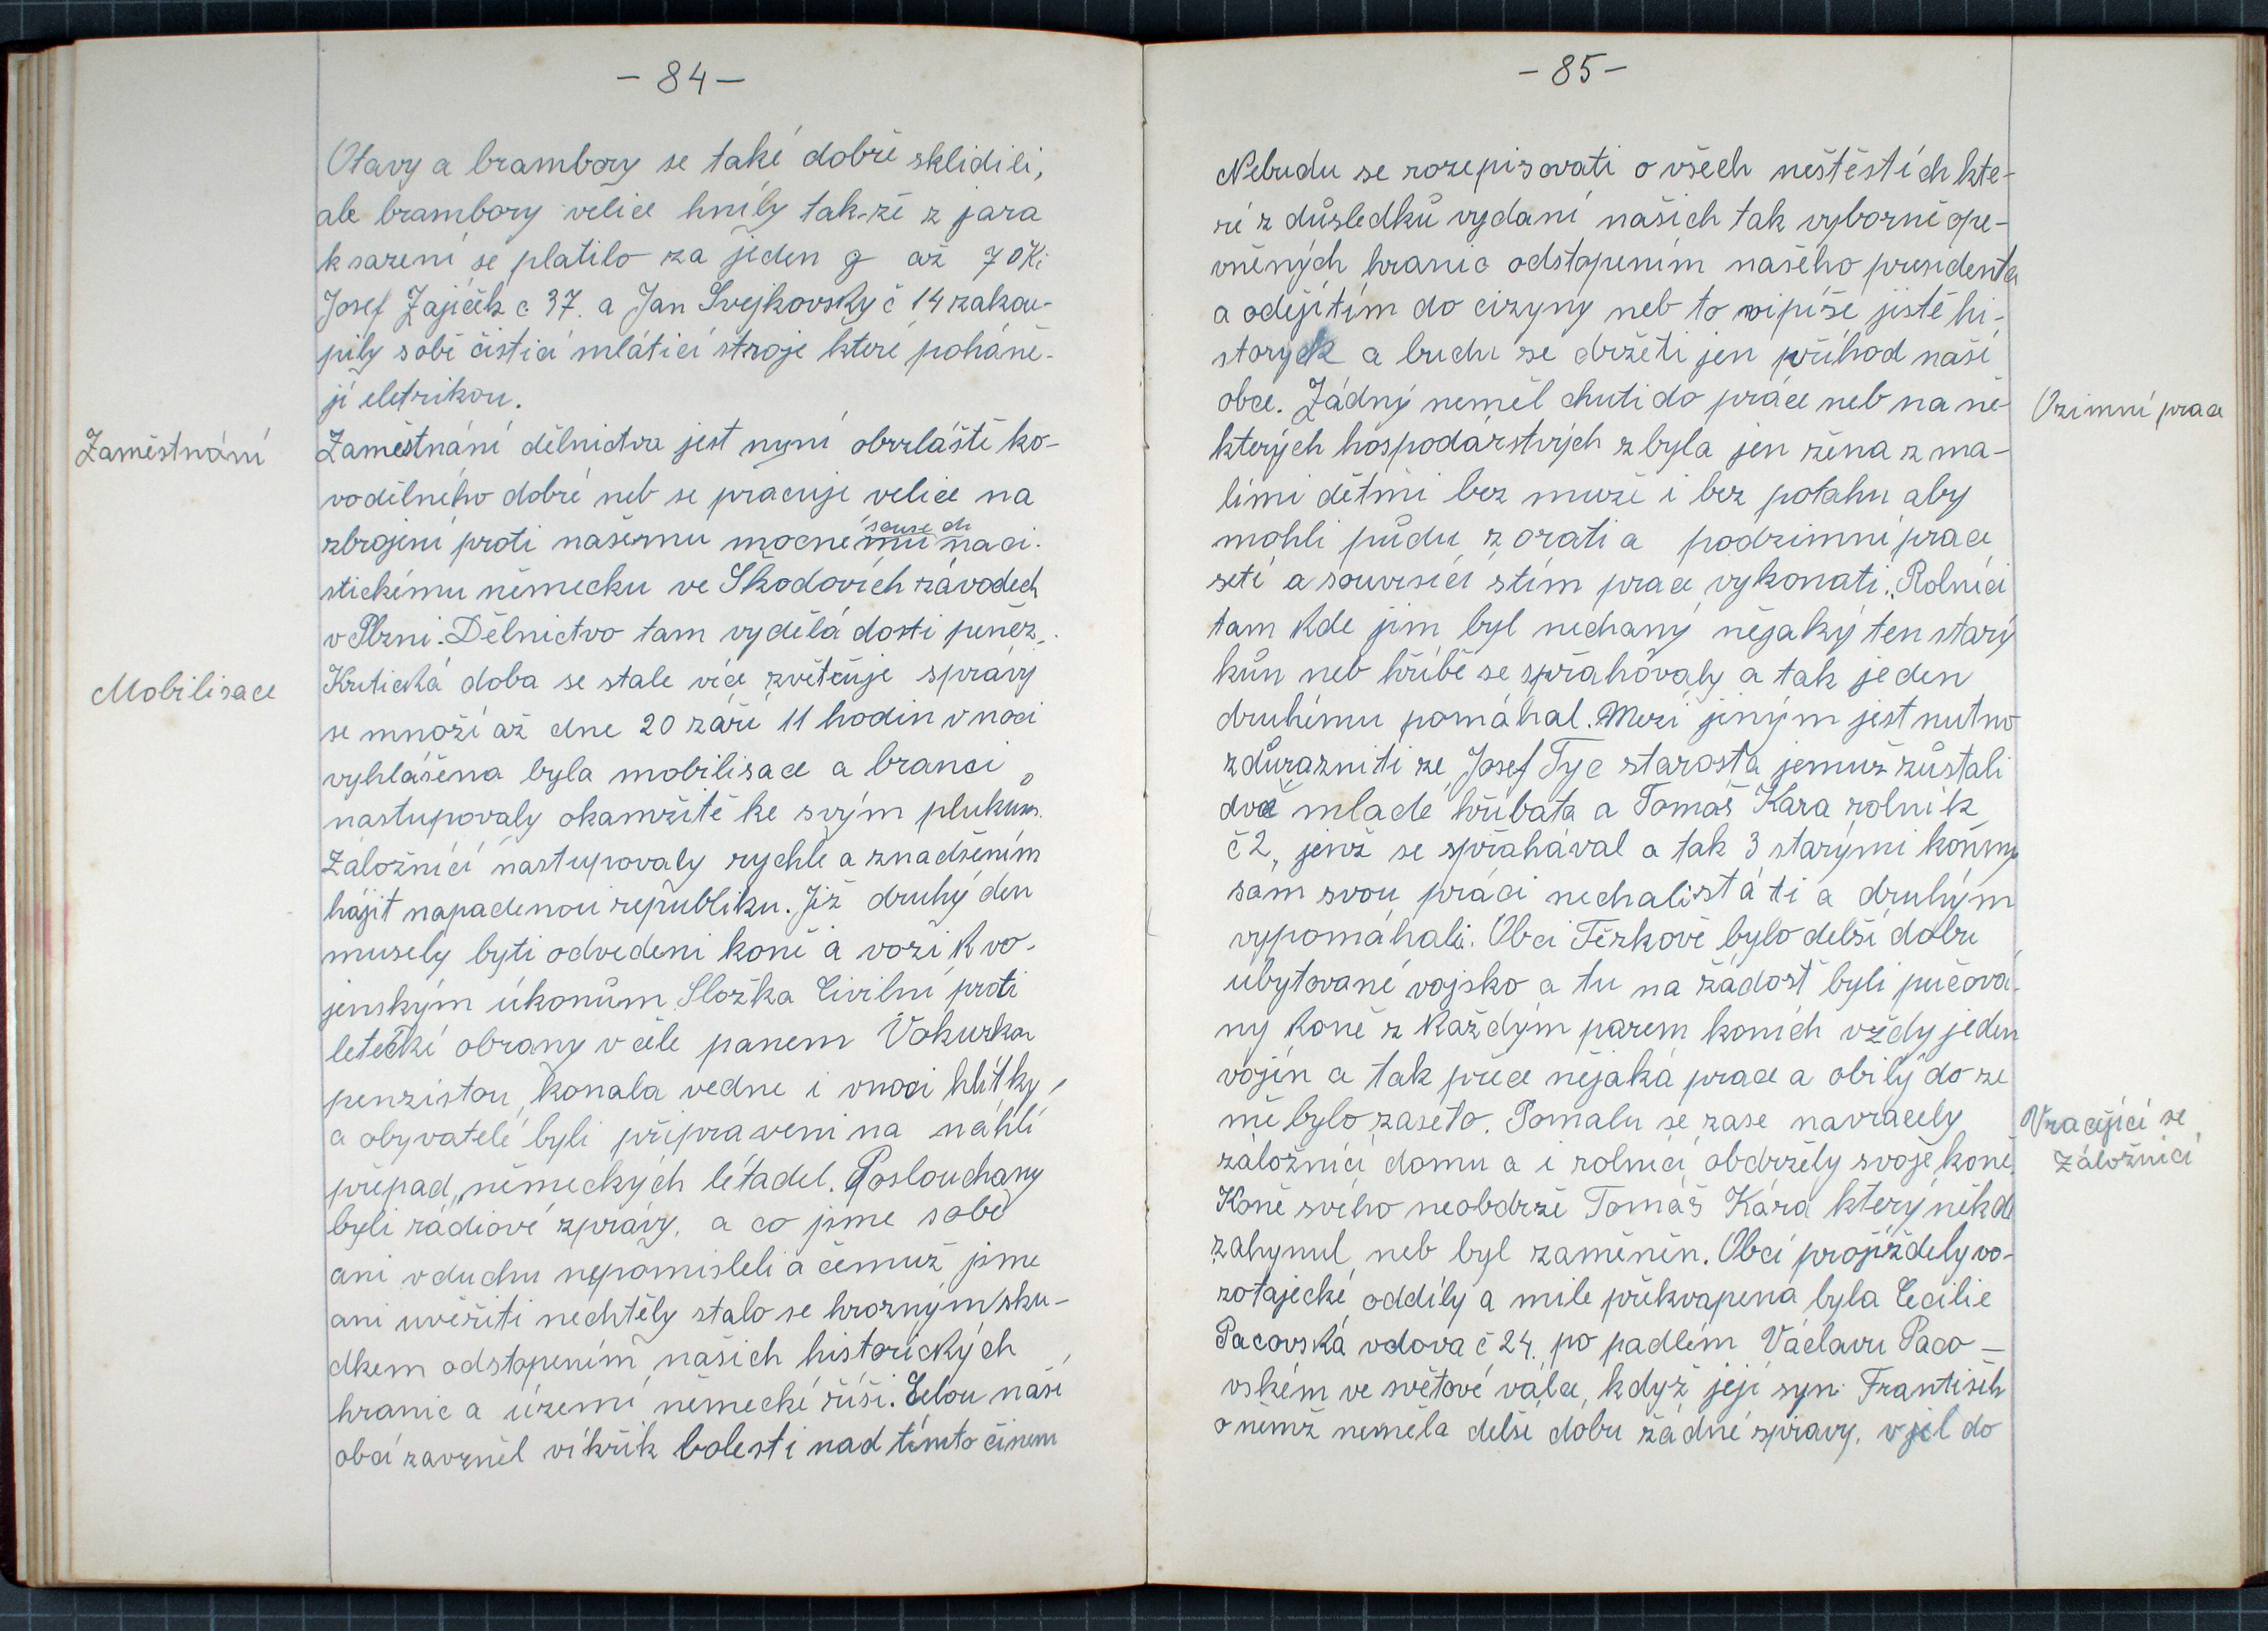 - 84 -
Otavy a brambory se také dobře sklidili,
ale brambory velice hnily tak-že z jara
k sazení se platilo za jeden q až 70 Kč
Josef Zajíček č 37. a Jan Svejkovský č 14 zakou-
pily sobě čistící mlátící stroje které poháně-
jí eletrikou.
Zaměstnání
Zaměstnání dělnictva jest nyní obvzláště ko-
vodělného dobré neb se pracuje velice na
soused
zbrojení proti našemu mocnému naci-
stickému německu ve Škodových závodech
v Plzni. Dělnictvo tam vydělá dosti peněz.
Mobilisace
Kritická doba se stale více zvětšuje správy
se množí až dne 20 září 11 hodin v noci
vyhlášena byla mobilisace a branci
nastupovaly okamžitě ke svým plukům.
Záložníci nastupovaly rychle a znadšením
hájit napadenou republiku. Již druhý den
musely byti odvedeni koně a vozi k vo-
jenským úkonům Složka Civilní proti
letecké obrany v čele panem Vokurkou
penzistou, konala vedne i vnoci hlítky,
a obyvatelé byli připraveni na náhlí
přepad, německých létadel. Poslouchany
byli rádiové zprávy, a co jsme sobě
ani v duchu nepomisleli a čemuž jsme
ani uvěřiti nechtěly stalo se hrozným sku-
dkem odstopením našich historických
hranic a území německé říši. Celou naší
obcí zavzněl víkřik bolesti nad tímto činem
- 85 -
Nebudu se rozepisovati o všech neštěstích kte-
ré z důsledků vydaní našich tak výborně ope-
vněných hranic odstopením našeho presidenta
a odejítím do cizyny neb to vipíše jistě hi-
storyck a budu se držeti jen příhod naší
Ozimní prace
obce. Žádný neměl chuti do práce neb na ně-
kterých hospodářstvých zbyla jen žena z ma-
límí dětmi bez muže i bez potahu aby
mohli půdu zorati a podzimní prace
setí a souvisící stím prace vykonati. Rolníci
tam kde jim byl nechaný nějaký ten starý
kůň neb hříbě se spřahovaly a tak jeden
druhému pomáhal. Mezi jiným jest nutno
zdůrazniti že Josef Tyc starosta jemuž zůstali
dvě mladé hříbata a Tomáš Kara rolník
č 2, jenž se spřahával a tak 3 starými koňmy
sám svou práci nechali státi a druhým
vypomáhali. Obci Těškově bylo delší dobu
ubytované vojsko a tu na žádost byli pučová-
ny koně z každým parem koních vždy jeden
vojín a tak přece nějaká prace a obilý do ze
Vracející se
záložníci
mě bylo zaseto. Pomalu se zase navracely
záložníci domu a i rolníci obdržely svoje koně.
Koně svého neobdrže Tomáš Kára který někde
zahynul neb byl zaměněn. Obcí projížděly vo-
zotajecké oddíly a mile překvapena byla Cecilie
Pacovská vdova č 24. po padlém Václavu Paco-
vském ve světové válce, když její syn František
o němž neměla delší dobu žádné spravy, vjel do